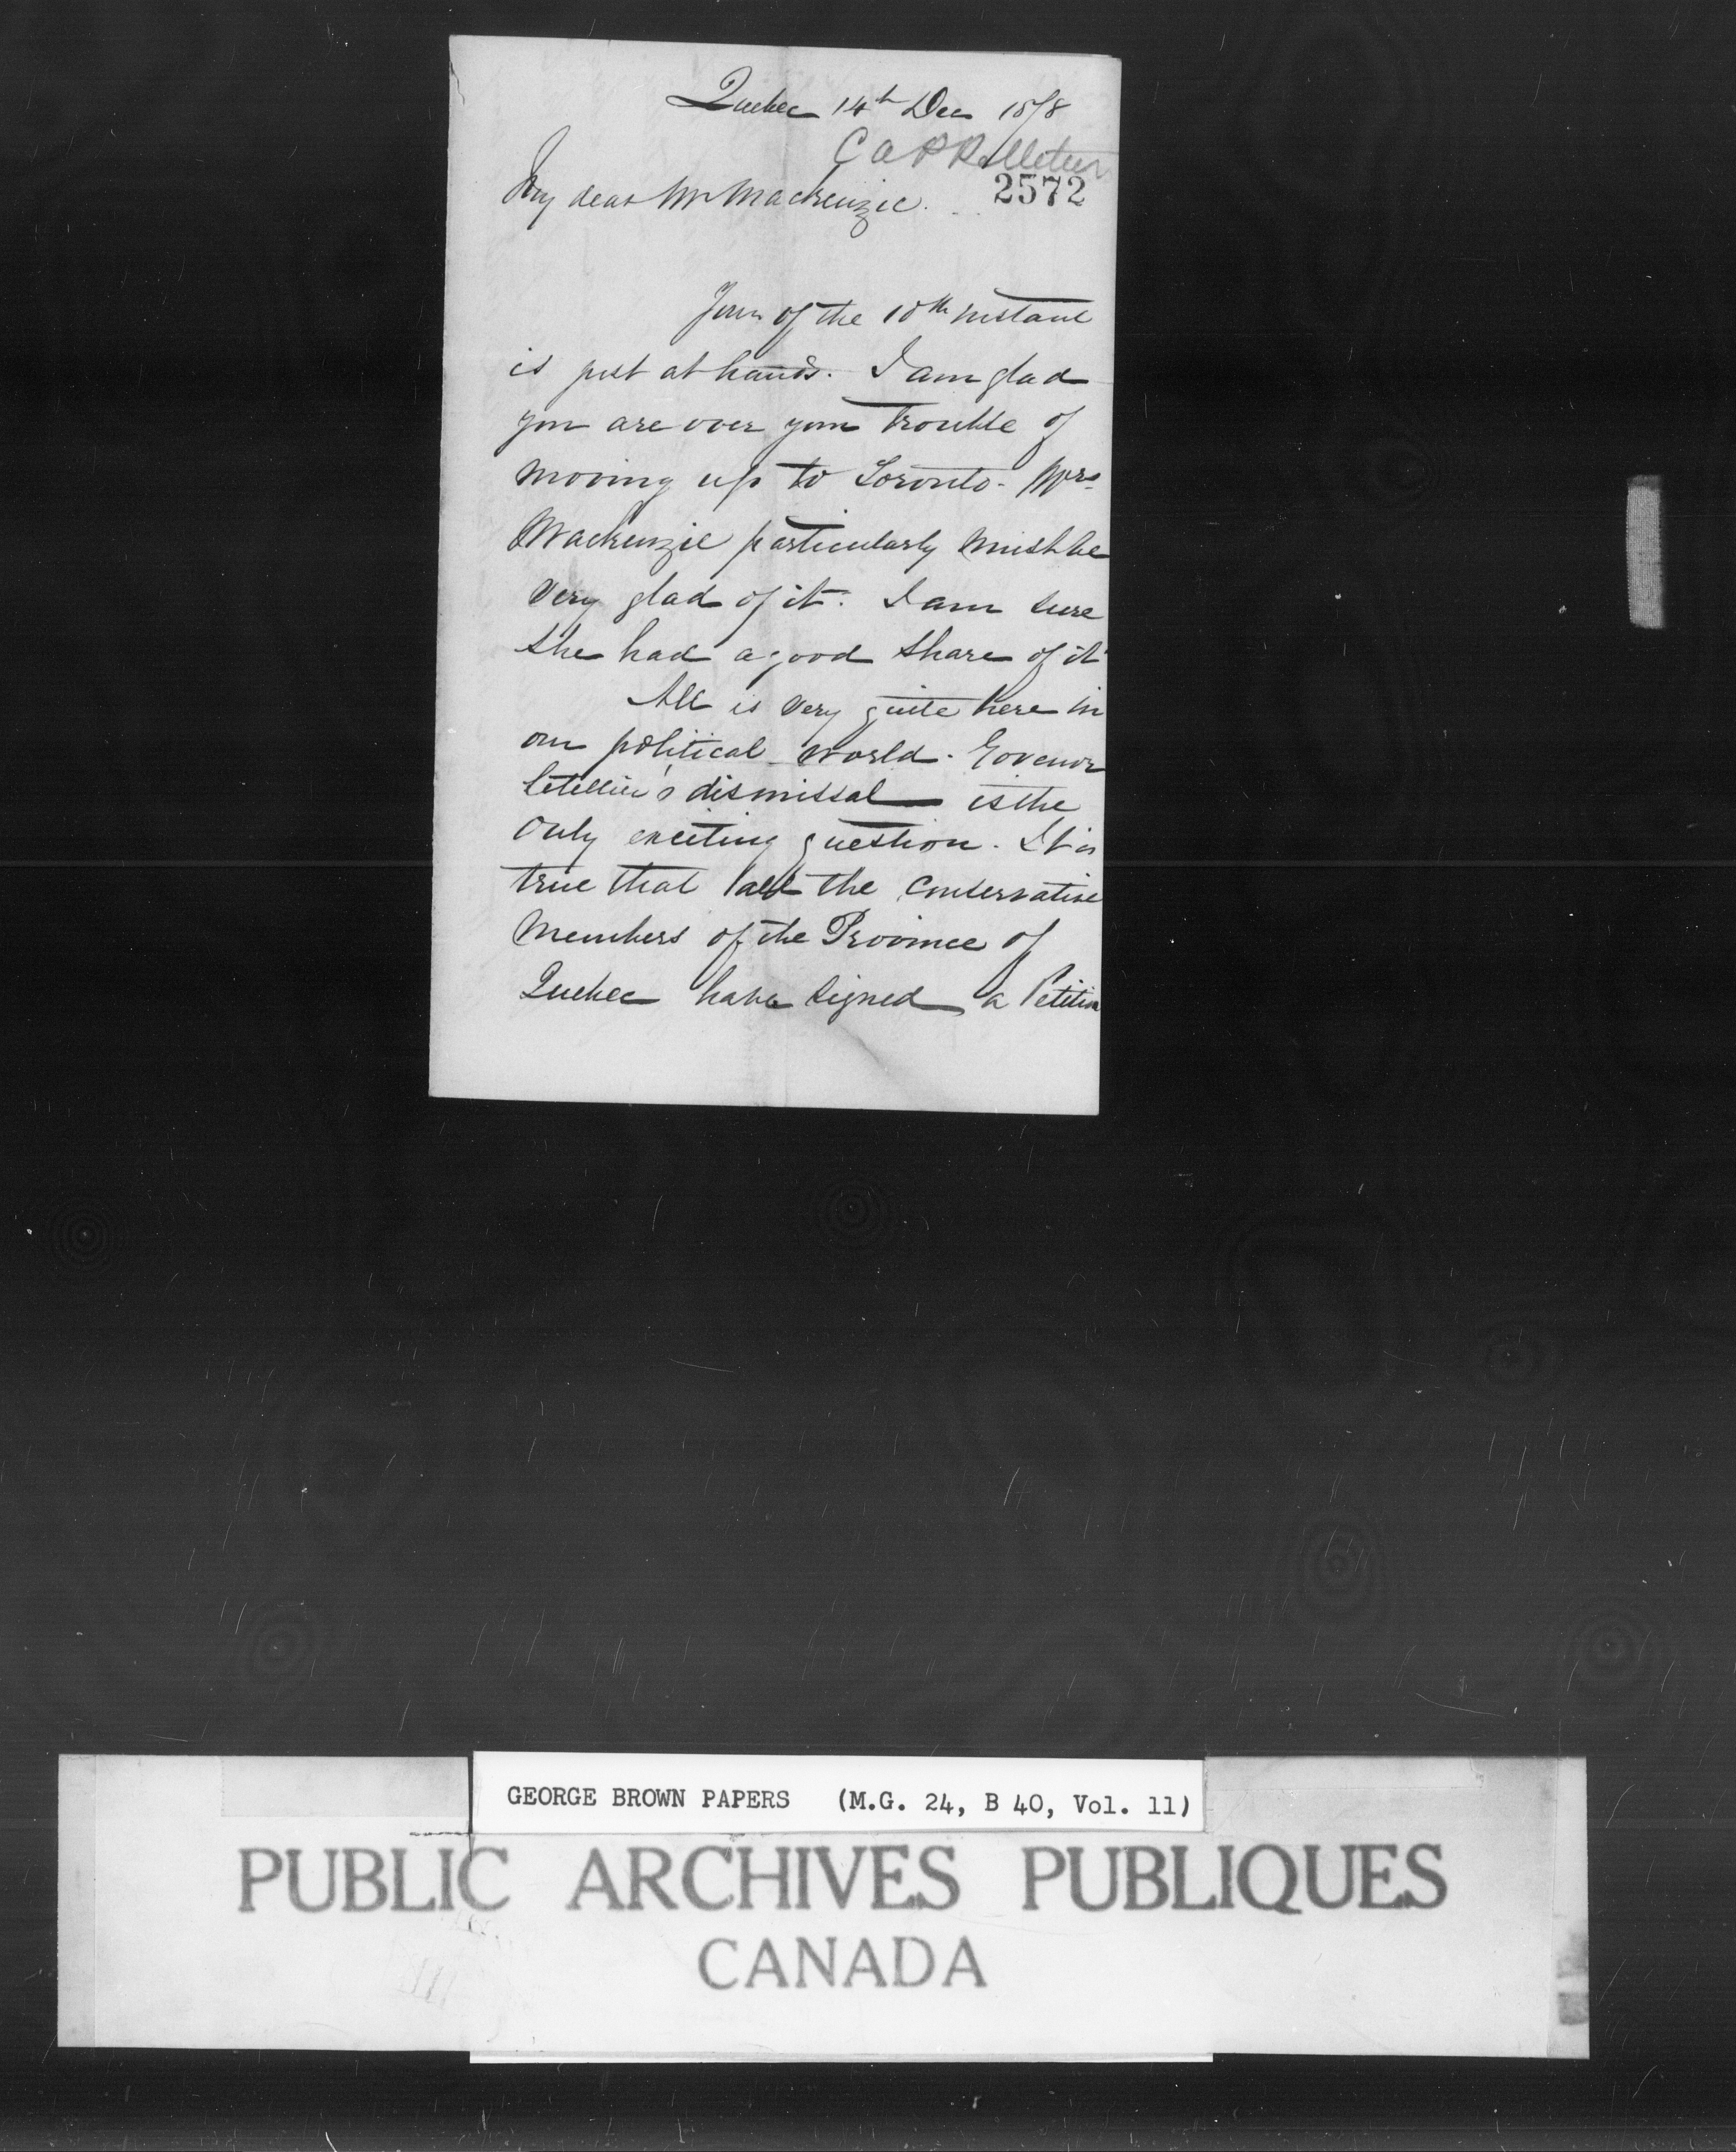 Quebec 14th Dec 1878
C a P Pelletier
2572
My dear Mr Mackenzie.
Yours of the 10th instant
is just at hands. I am glad
you are over your trouble of
moving up to Toronto - Mrs
Mackenzie particularly must be
very glad of it. I am sure
she had a good share of it
All is very quite here in
our political world. Govenor
Letellier's dismissal is the
only exciting question. It is
true that all the Conservative
Members of the Province of
Quebec have signed a Petition
GEORGE BROWN PAPERS (M.G. 24, B 40, Vol. 11)
PUBLIC ARCHIVES PUBLIQUES
CANADA